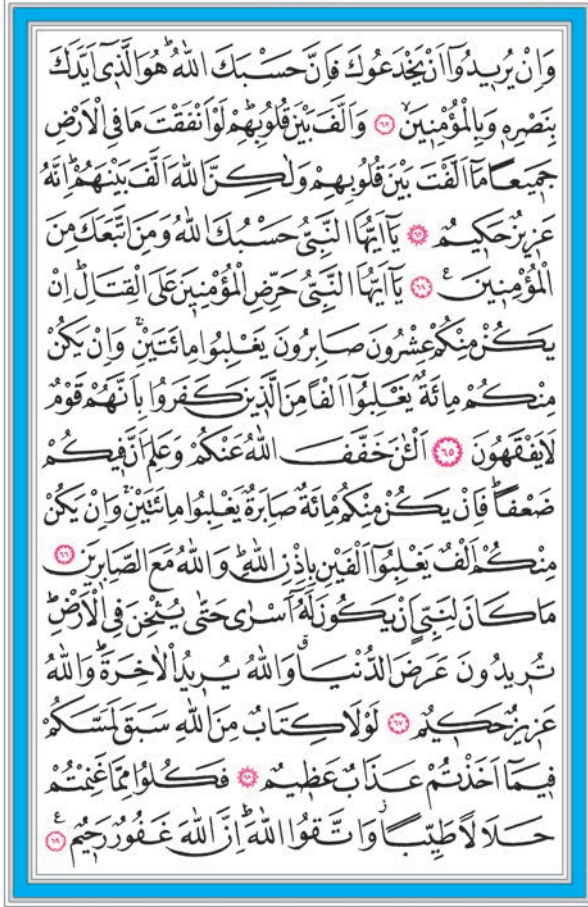 وَاِنْ يُرٖيدُٓوا اَنْ يَخْدَعُوكَ فَاِنَّ حَسْبَكَ اللّٰهُؕ هُوَ الَّذٖٓى اَيَّدَكَ
بِنَصْرِهٖ وَبِالْمُؤْمِنٖينَۙ ﴿٦٢﴾ وَاَلَّفَ بَيْنَ قُلُوبِهِمْؕ لَوْ اَنْفَقْتَ مَا فِى الْاَرْضِ
جَمٖيعًا مَٓا اَلَّفْتَ بَيْنَ قُلُوبِهِمْ وَلٰكِنَّ اللّٰهَ اَلَّفَ بَيْنَهُمْؕ اِنَّهُ
عَزٖيزٌ حَكٖيمٌ ﴿٦٣﴾ يَٓا اَيُّهَا النَّبِىُّ حَسْبُكَ اللّٰهُ وَمَنِ اتَّبَعَكَ مِنَ
الْمُؤْمِنٖينَ ع ﴿٦٤﴾ يَٓا اَيُّهَا النَّبِىُّ حَرِّضِ الْمُؤْمِنٖينَ عَلَى الْقِتَالِؕ اِنْ
يَكُنْ مِنْكُمْ عِشْرُونَ صَابِرُونَ يَغْلِبُوا مِائَتَيْنِۚ وَاِنْ يَكُنْ
مِنْكُمْ مِائَةٌ يَغْلِبُٓوا اَلْفًا مِنَ الَّذٖينَ كَفَرُوا بِاَنَّهُمْ قَوْمٌ
لَا يَفْقَهُونَ ﴿٦٥﴾ اَلْـٰٔنَ خَفَّفَ اللّٰهُ عَنْكُمْ وَعَلِمَ اَنَّ فٖيكُمْ
ضَعْفًاؕ فَاِنْ يَكُنْ مِنْكُمْ مِائَةٌ صَابِرَةٌ يَغْلِبُوا مِائَتَيْنِۚ وَاِنْ يَكُنْ
مِنْكُمْ اَلْفٌ يَغْلِبُٓوا اَلْفَيْنِ بِاِذْنِ اللّٰهِؕ وَاللّٰهُ مَعَ الصَّابِرٖينَ ﴿٦٦﴾
مَا كَانَ لِنَبِىٍّ اَنْ يَكُونَ لَهُٓ اَسْرٰى حَتّٰى يُثْخِنَ فِى الْاَرْضِؕ
تُرٖيدُونَ عَرَضَ الدُّنْيَاۗ وَاللّٰهُ يُرٖيدُ الْاٰخِرَةَؕ وَاللّٰهُ
عَزٖيزٌ حَكٖيمٌ ﴿٦٧﴾ لَوْلَا كِتَابٌ مِنَ اللّٰهِ سَبَقَ لَمَسَّكُمْ
فٖيمَٓا اَخَذْتُمْ عَذَابٌ عَظٖيمٌ ﴿٦٨﴾ فَكُلُوا مِمَّا غَنِمْتُمْ
حَلَالًا طَيِّبًاؗ وَاتَّقُوا اللّٰهَؕ اِنَّ اللّٰهَ غَفُورٌ رَحٖيمٌ ع ﴿٦٩﴾